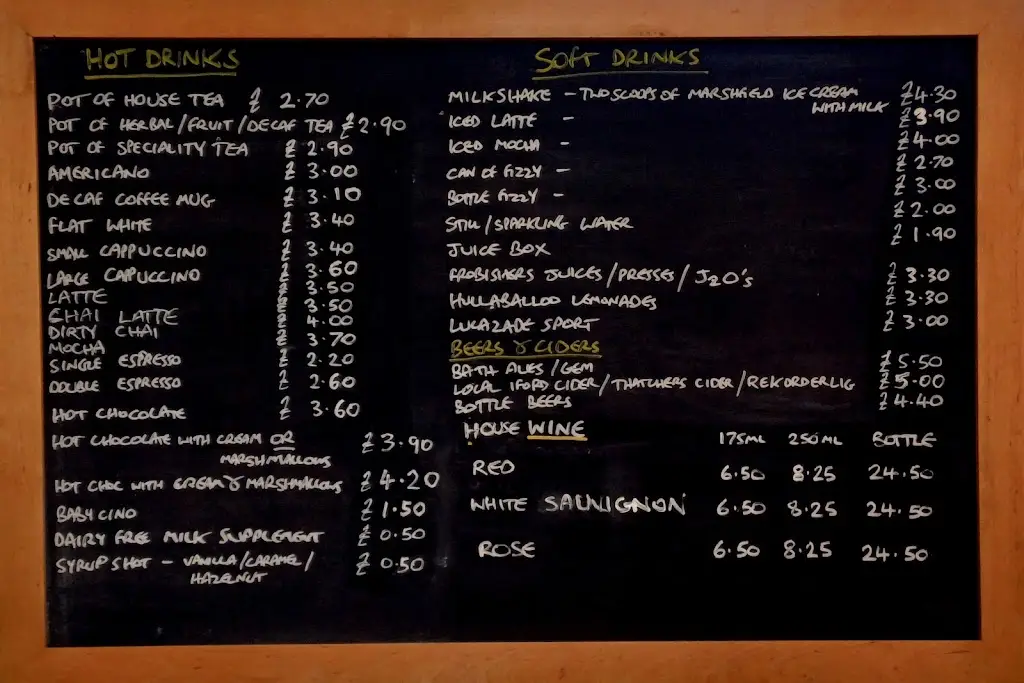 HOT DRINKS
POT OF HOUSE TEA £ 2.70
POT OF HERBAL/FRUIT/DECAF TEA £2.90
POT OF SPECIALITY TEA £ 2.90
AMERICANO £ 3.00
DECAF COFFEE MUG £ 3.10
FLAT WHITE £ 3.40
SMALL CAPPUCCINO £ 3.40
LARGE CAPPUCCINO £ 3.60
LATTE £ 3.50
CHAI LATTE £ 3.50
DIRTY CHAI £ 4.00
MOCHA £ 3.70
SINGLE ESPRESSO £ 2.20
DOUBLE ESPRESSO £ 2.60
HOT CHOCOLATE £ 3.60
HOT CHOCOLATE WITH CREAM OR £3.90
MARSHMALLOWS
HOT CHOC WITH CREAM & MARSHMALLOWS £4.20
BABYCINO £ 1.50
DAIRY FREE MILK SUPPLEMENT £ 0.50
SYRUP SHOT - VANILLA/CARAMEL/ £ 0.50
HAZELNUT
SOFT DRINKS
MILKSHAKE - TWO SCOOPS OF MARSHFIELD ICE CREAM £4.30
WITH MILK
ICED LATTE - £3.90
ICED MOCHA - £4.00
CAN OF FIZZY - £2.70
BOTTLE FIZZY - £3.00
STILL/SPARKLING WATER £2.00
JUICE BOX £1.90
FROBISHERS JUICES/PRESSES/J2O'S £3.30
HULLABALLOO LEMONADES £3.30
LUCAZADE SPORT £3.00
BEERS & CIDERS
BATH ALES/GEM £5.50
LOCAL IFORD CIDER/THATCHERS CIDER/REKORDERLIG £5.00
BOTTLE BEERS £4.40
HOUSE WINE
175ML 250ML BOTTLE
RED 6.50 8.25 24.50
WHITE SAUVIGNON 6.50 8.25 24.50
ROSE 6.50 8.25 24.50